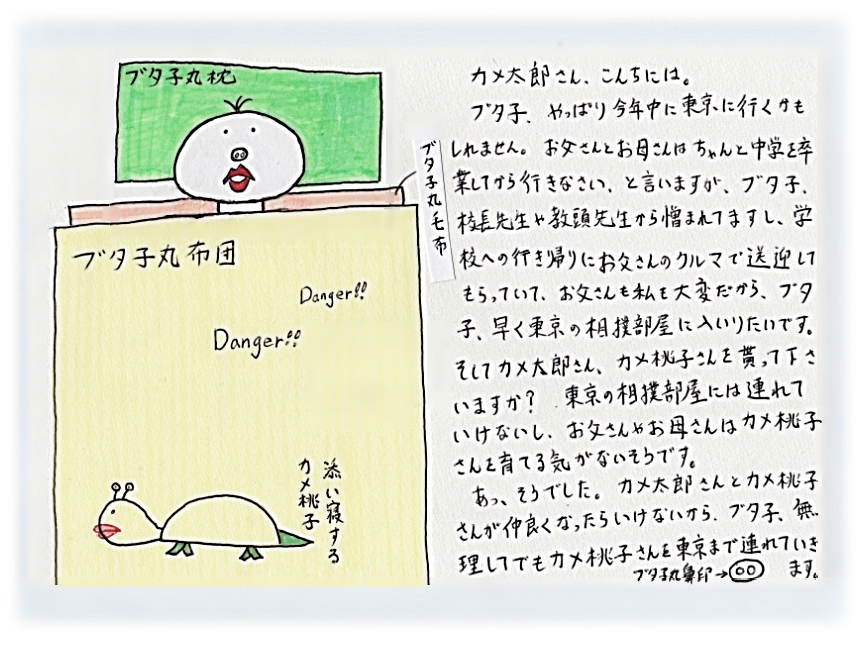 ブタ子丸枕
ブタ子丸毛布
ブタ子丸布団
Danger!!
Danger!!
添い寝する
カメ桃子
カメ太郎さん、こんちには。
ブタ子、やっぱり今年中に東京に行くかも
しれません。お父さんとお母さんはちゃんと中学を卒
業してから行きなさい、と言いますが、ブタ子、
校長先生や教頭先生から憎まれてますし、学
校への行き帰りにお父さんのクルマで送迎して
もらっていて、お父さんも私も大変だから、ブタ
子、早く東京の相撲部屋に入いりたいです。
そしてカメ太郎さん、カメ桃子さんを貰って下さ
いますか？ 東京の相撲部屋には連れて
いけないし、お父さんやお母さんはカメ桃子
さんを育てる気がないそうです。
あっ、そうでした。カメ太郎さんとカメ桃子
さんが仲良くなったらいけないから、ブタ子、無
理してでもカメ桃子さんを東京まで連れていき
ます。
ブタ子丸鼻印→